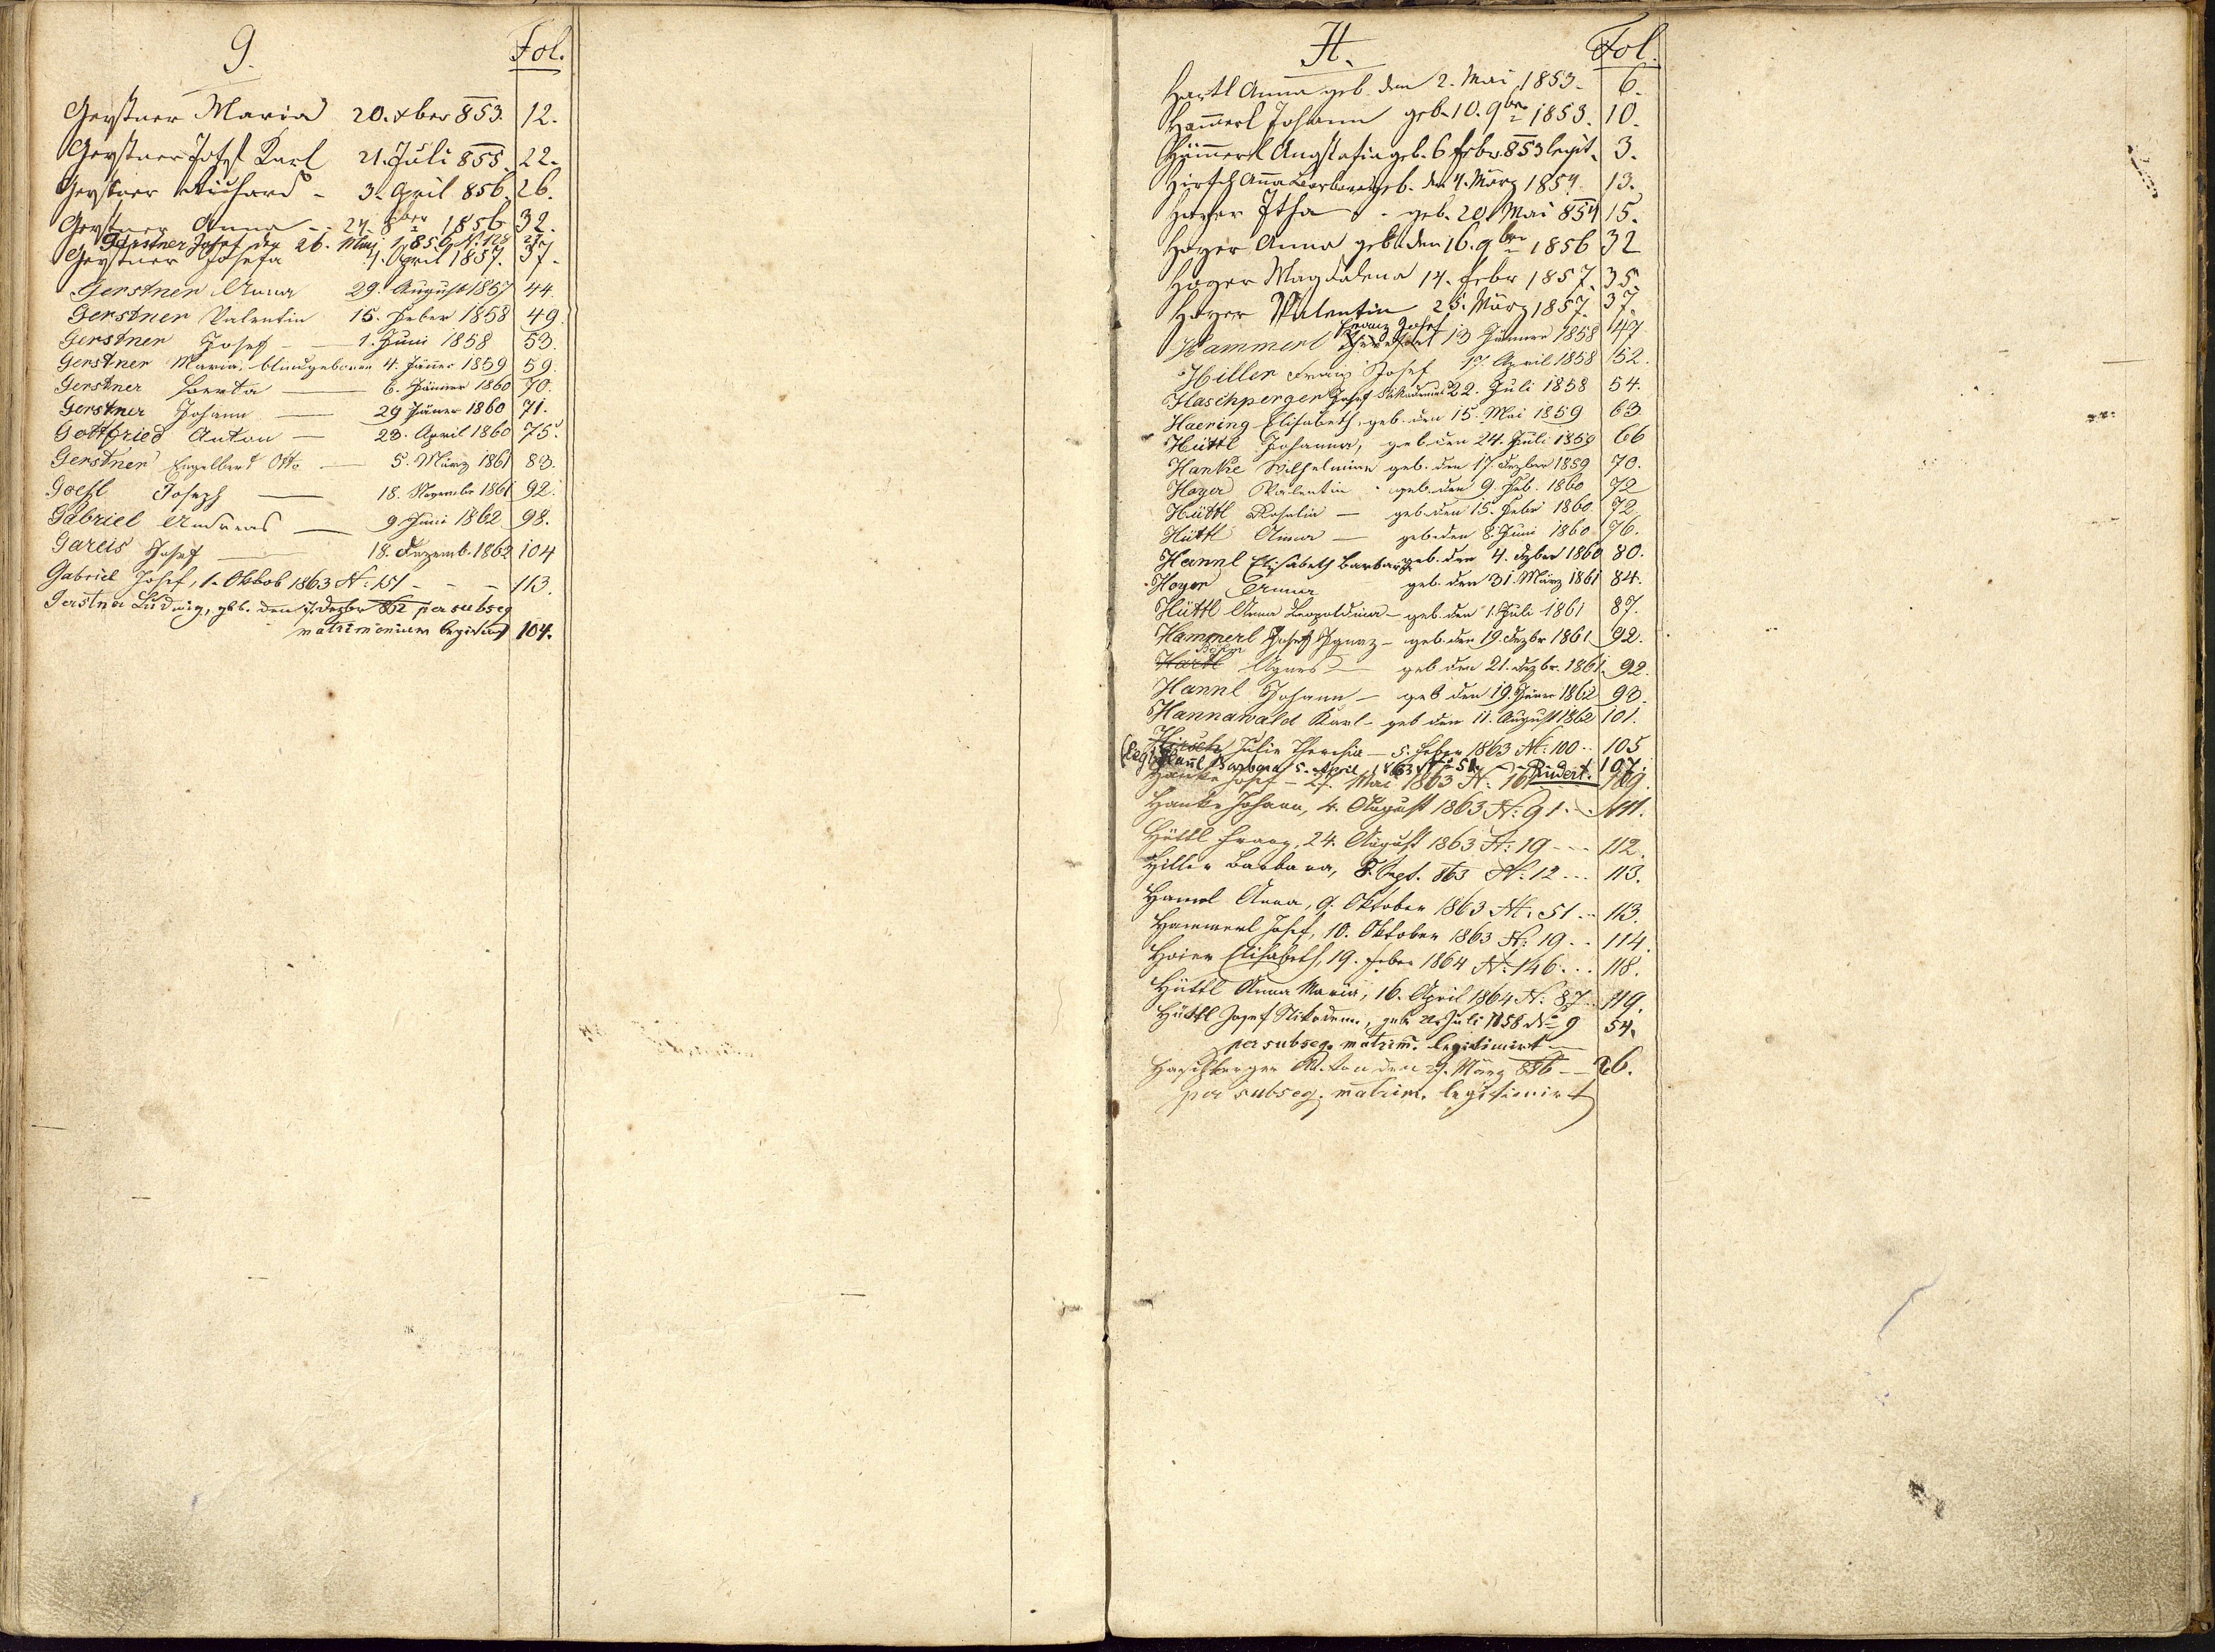 G. Fol.
Gerstner Maria 20. xber 853. 12.
Gerstner Josef Karl 21. Juli 855. 22.
Gerstner Richard - 3. April 856. 26.
Gerstner Anna - 24. 8ber 1856 32.
Gerstner Josef den 26. Mai 1856 N. 128 27
Gerstner Josefa 4. April 1857. 37.
Gerstner Anna 29. August 1857 44.
Gerstner Valentin 15. Feber 1858 49.
Gerstner Josef — 1. Juni 1858 53.
Gerstner Maria, 4. Jänner 1859 59.
Gerstner — 6. Jänner 1860 70.
Gerstner Johann — 29 Jäner 1860 71.
Gottfried Anton — 23. April 1860 75.
Gerstner Engelbert Otto — 5. März 1861 83.
Goeßl Joseph — 18. Novembr 1861 92.
Gabriel Andreas — 9. Juni 1862 98.
Gareis Josef — 18. Dezemb. 1862 104
Gabriel Josef, 1. Oktob 1863 N: 151 - - - 113.
Gerstner Ludwig, geb. den 7. Dezbr 862 per subseq
matrimonium legitim 104.
H. Fol.
Hartl Anna geb. den 2. Mai 1853. 6.
Hammerl Johann geb. 10. 9br 1853. 10.
Hammerl geb. 6 Febr. 853 legit. 3.
Hirsch Anna Barbara geb. den 4. März 1854. 13.
Hoyer Itha - geb. 20. Mai 854 15.
Hoyer Anna geb. den 16. 9br 1856 32
Hoyer Magdalena 14. Febr 1857. 35.
Hoyer Valentin 25. März 1857. 37.
Hammerl Franz Josef 13 Jänner 1858 47.
Hiller Franz Josef 17. April 1858 52.
Haschperger Josef Nikodemus 22. Juli 1858 54.
Haering Elisabeth, geb. den 15. Mai 1859 63
Hüttl Johanna, geb. den 24. Juli 1859 66
Hanke Wilhelmine geb. den 17. Dezber 1859 70.
Hoyer Valentin geb. den 9. Feb. 1860 72
Hüttl Rosalia — geb. den 15. Feber 1860 72
Hüttl Anna — geb. den 8. Juni 1860 76.
Hannl Elisabeth Barbara geb. den 4. Dzber 1860 80.
Hoyer Anna geb. den 31. März 1861 84.
Hüttl Anna Leopoldina — geb. den 1. Juli 1861 87.
Hammerl Josef Ignaz - geb. den 19. Dezbr 1861 92.
Böhm
Hartl Agnes — geb den 21. Dezbr. 1861. 92.
Hannl Johann — geb den 19. Jäner 1862 93.
Hannawald Karl - geb den 11. August 1862 101.
Hirsch Julie Theresia — 5. Feber 1863 N: 100 .. 105
Hannl Barbara 5. April 1863 N: 51 107.
Hanke Josef - 27. Mai 1863 N: 109.
Hanke Johann, 4. August 1863 N: 91 .. 111.
Hüttl Franz, 24. August 1863 N: 19 - - - 112.
Hiller Barbara, 8. Sept. 863 N: 12 ... 113.
Hannl Anna, 9. Oktober 1863 N: 51 .. 113.
Hammerl Josef, 10. Oktober 1863 N: 19 .. 114.
Hoier Elisabeth, 19. Feber 1864 N: 146 ... 118.
Hüttl Anna Maria, 16. April 1864 N: 87 .. 119.
Hüttl Josef Nikodem., geb. Juli 1858 No 9 54.
per subseq. matrim. legitimirt —
Haschberger den 29. März 856 -- 26.
per subseq. matrim. legitimirt